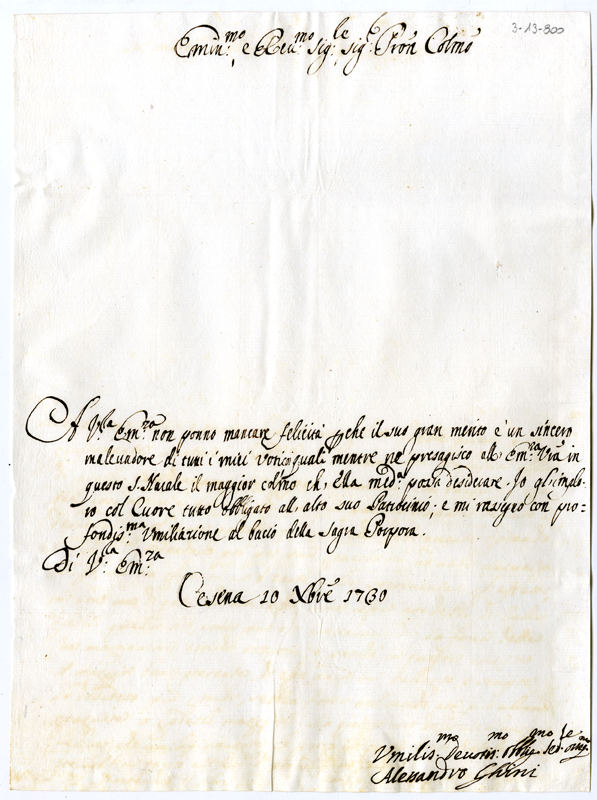 3-13-800
Emin:mo e Reu:mo Sig:le Sig:e Pron Colmo
A V:la Em:za non ponno mancare felicità pche il suo gran merito è un sincero
maleuadore di tutti i miei voti; quali mentre ne presagisco all' Em:za Vra in
questo S. Natale il maggior colmo ch' ella med:a possa desiderare. Io gl'implo-
ro col Cuore tutto obbligato all' alto suo Patrocinio; e mi rasegno con pro=
fondis:ma Vmiliazione al bacio della Sagra Porpora.
Di V:la Em:za
Cesena 10 Xbre 1730
Vmilis:ma Deuotis:mo Obblig:mo Ser:le
Alessandro Ghini